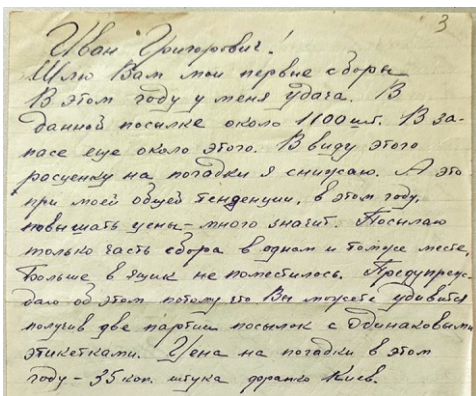 3
Иван Григорович!
Шлю Вам мои первые сборы
В этом году у меня удача. В
данной посылке около 1100 шт. В за-
пасе еще около этого. В виду этого
расценку на погадки я снижаю. А это
при моей общей тенденции, в этом году,
повышать цены – много значит. Посылаю
только часть сбора в одном и томже месте,
больше в ящик не поместилось. Предупреж-
даю об этом потому что Вы можете удивится
получив две партии посылок с одинаковыми
этикетками. Цена на погадки в этом
году – 35 коп. штука франко Киев.